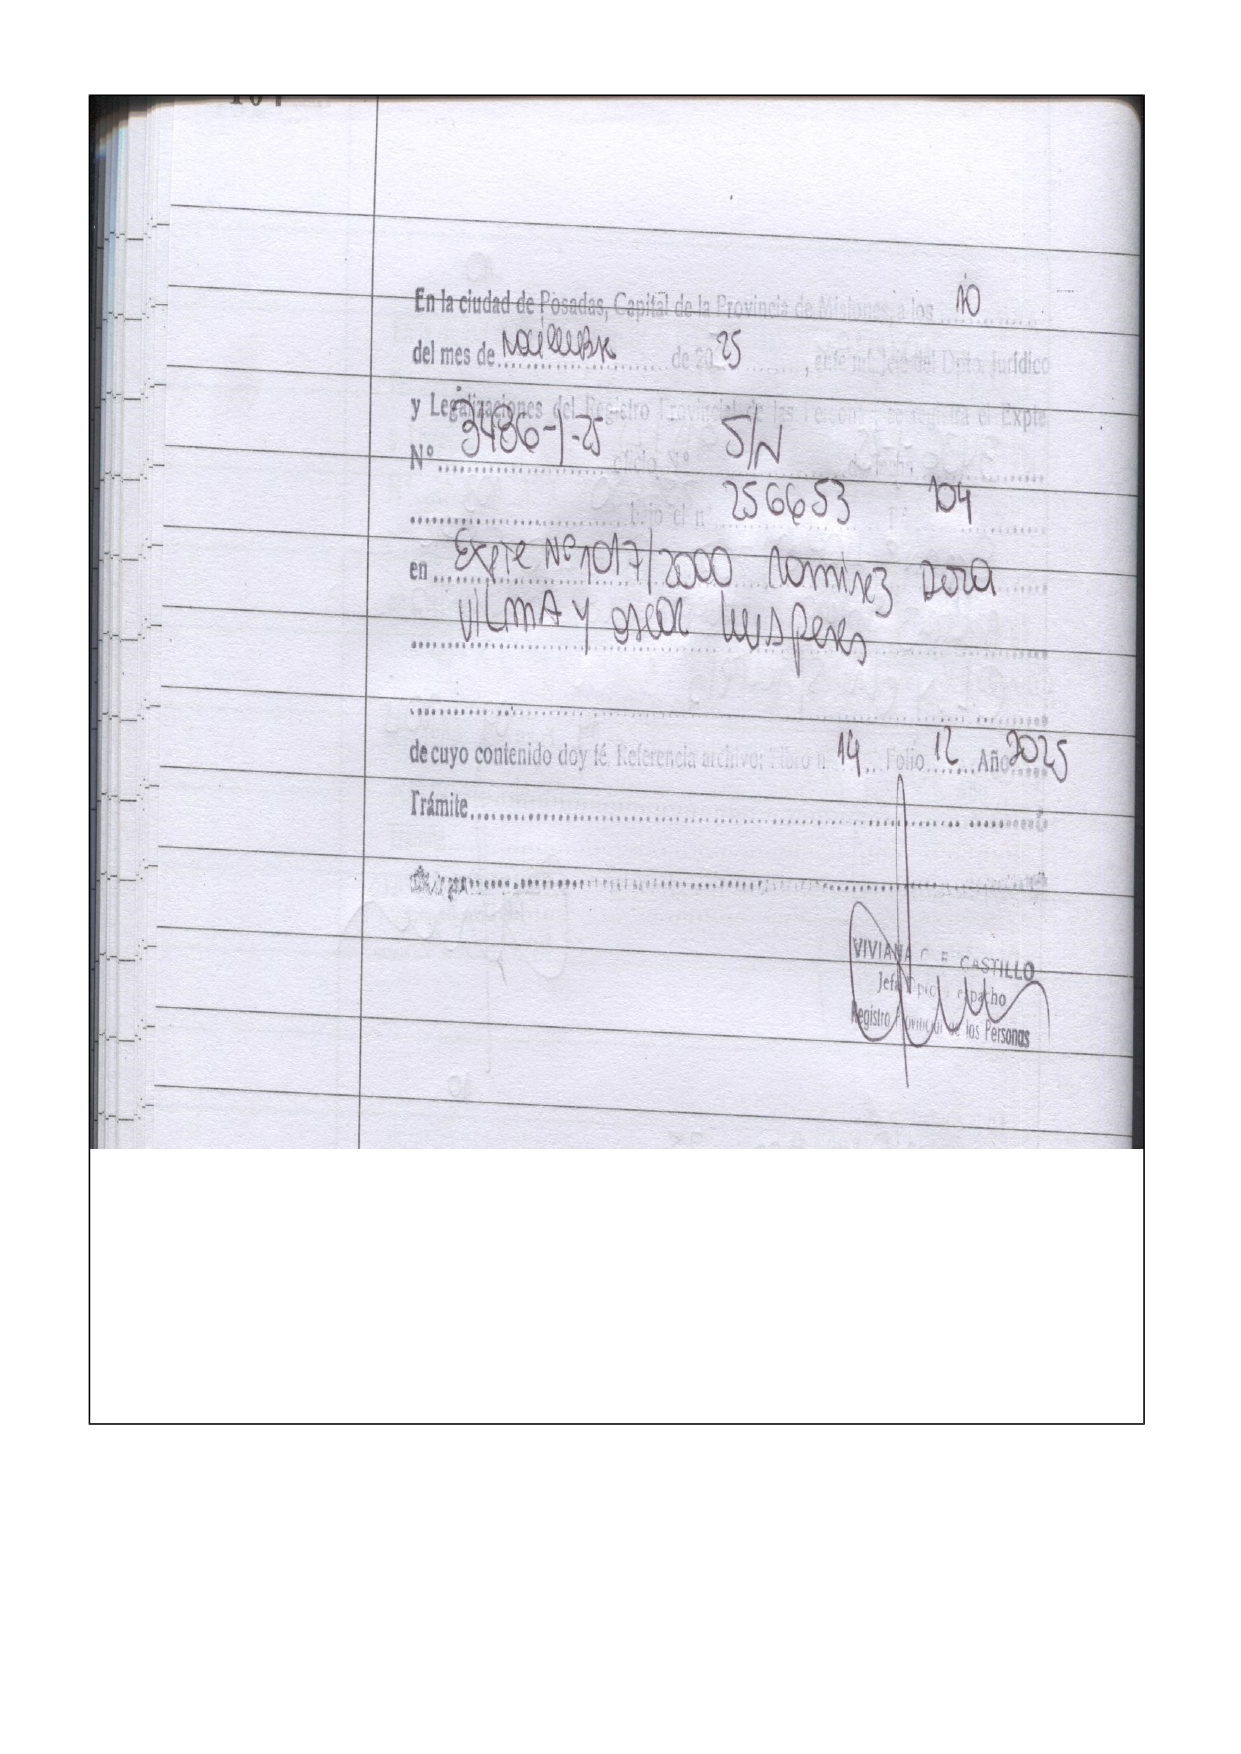 En la ciudad de Posadas, Capital de la Provincia de Misiones, a los 10
del mes de Noviembre de 2025, ante mí, Jefe del Dpto. Jurídico
y Legalizaciones del Registro Provincial de las se registra el Expte.
Nº 3486-1-25 oficio Nº S/N
bajo el nº 256653 Fº 104
en Expte Nº 1017/2000 Ramirez Dora
VILMA y oscar Luis peres
de cuyo contenido doy fé. Referencia archivo: Libro n 14 Folio 12 Año 2025
Trámite
VIVIANA C. E. CASTILLO
Jefa Dpto. Despacho
Registro Provincial de las Personas